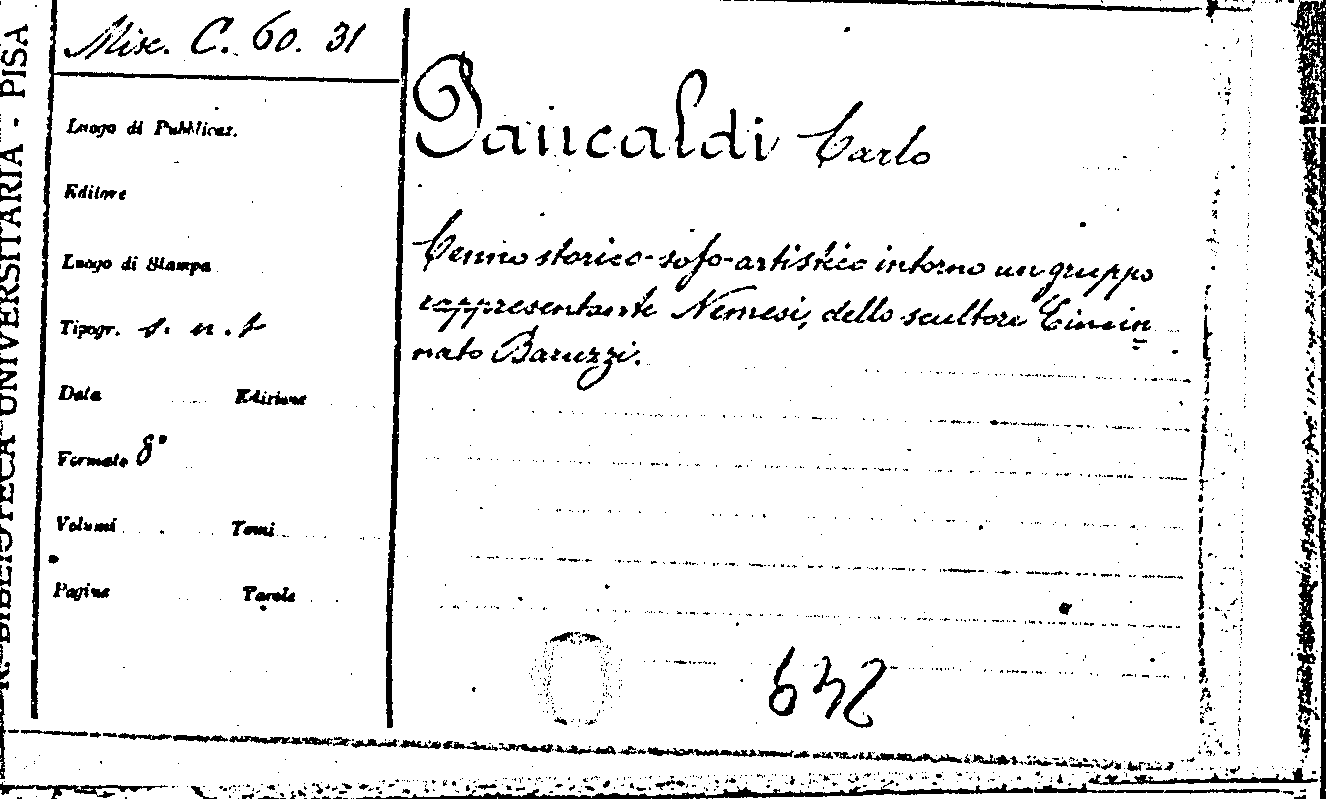 R. BIBLIOTECA UNIVERSITARIA - PISA
Misc. C. 60. 31
Luogo di Pubblicaz.
Editore
Luogo di Stampa
Tipogr. s. n. t
Data Edizione
Formato 8°
Volumi Tomi
Pagine Tavole
Pancaldi Carlo
Cenno storico-sofo-artistico intorno un gruppo
rappresentante Nemesi, dello scultore Cincin
nato Baruzzi.